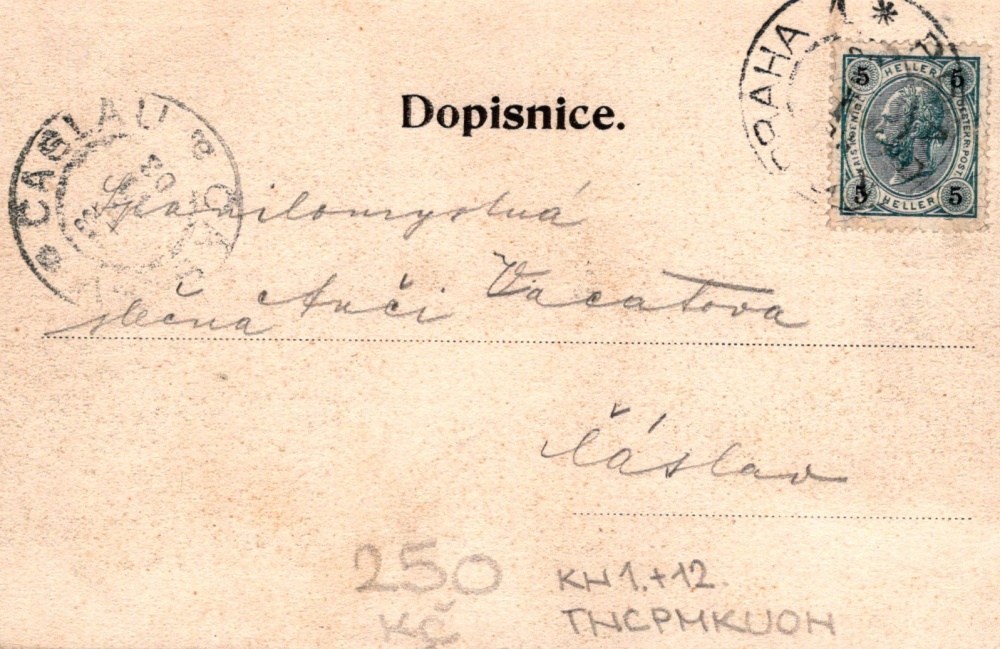 PRAHA 1 *
Dopisnice.
5 HELLER 5
5 HELLER 5
* ČASLAU
slečna Anči Vacatova
Čáslav
250
Kč
KH1.+12.